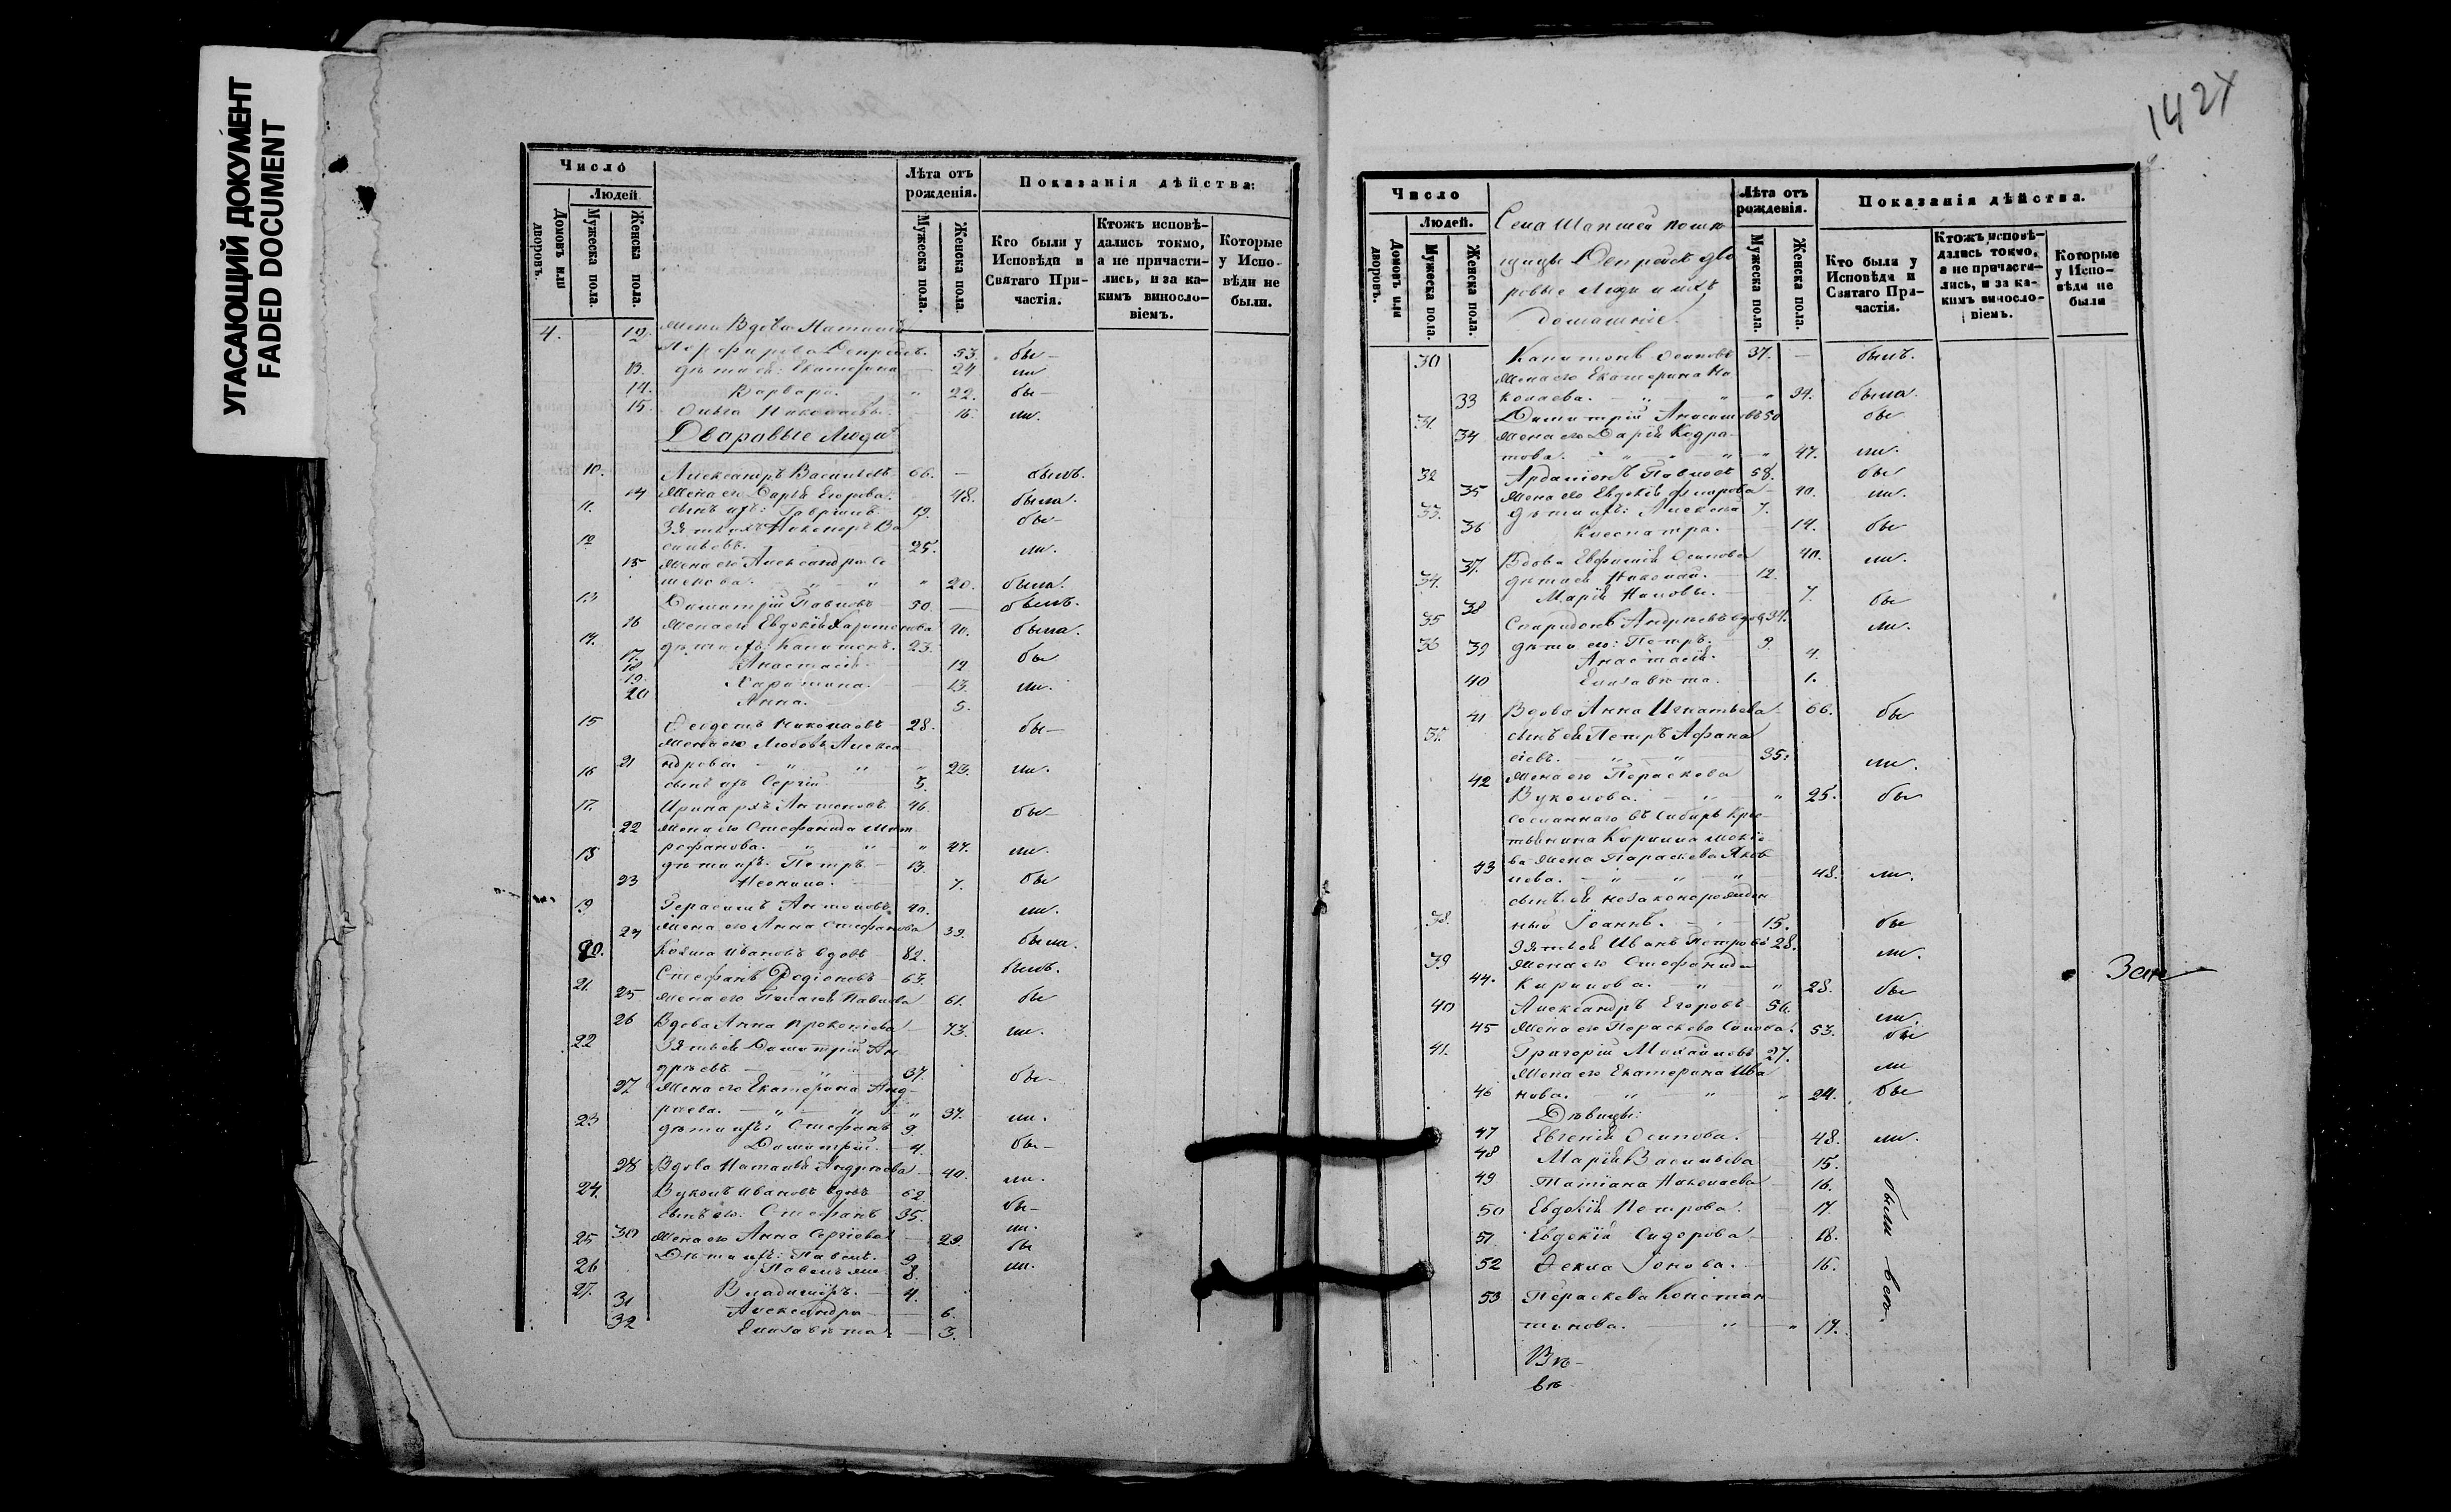 УГАСАЮЩИЙ ДОКУМЕНТ
FADED DOCUMENT
Число
Людей
Домовъ или дворовъ.
Мужеска пола.
Женска пола.
Лѣта отъ рожденія.
Мужеска пола.
Женска пола.
Показанія дѣйства:
Кто были у Исповѣди и Святаго При-частія.
Ктожъ исповѣ-дались токмо, а не причасти-лись, и за ка-кимъ виносло-віемъ.
Которые у Испо-вѣди не были.
4. 12. жена Вдова Наталія
53. бы-
13. дѣти ея: Екатерина 24 ли
14. Варвара. " 22. бы-
15. Ольга Николаевы. 16. ли.
Дваровые люди
10. Александръ Васильевъ 66. — былъ.
14 Жена его Дарія Егорова. 48. была.
11. сынъ ихъ: Гавріилъ. 19. бы-
12 сильевъ. 25. ли.
15 Жена его Александра Се
менова. " " " 20. была.
13 Димитрій Павловъ 50. — былъ.
16 Жена его Евдокія Харитонова 40. была.
14. дѣти ихъ: Капитонъ. 23.
17. Анастасія. 19. бы
18
19. Харитина. — 13. ли.
20 Анна. 5.
15 Ѳеодотъ Николаевъ 28. бы-
Жена его Любовь Алекса
21 ндрова. " " " 23. ли.
16 сынъ ихъ Сергій. 5.
17. Иринархъ Антоновъ. 46. бы-
22 Жена его Стефанида Мит
рофанова. " " " 47. ли.
18 дѣти ихъ. Петръ. 13.
23 Неонила. 7. бы
19 Герасимъ Антоновъ. 40. ли.
24 Жена его Анна Стефанова 39. была.
20. Козма Ивановъ вдовъ 82. былъ.
21. Стефанъ Родіоновъ 63. бы
25 Жена его Пелагія Павлова 61.
26 Вдова Анна Прокопіева 73. ли.
22 Зять ея Димитрій Ан
дрѣевъ 37. бы-
27 Жена его Екатерина Анд-
рѣева. — " — " 37. ли.
23 дѣти ихъ: Стефанъ 9.
Димитрій. 4. бы-
28 Вдова Наталія Андрѣева 40. ли.
24. Вуколъ Ивановъ вдовъ 62. бы-
сынъ его: Стефанъ 35. ли.
25 30 Жена его Анна Сергіева 29. бы
26 Дѣти ихъ: Павелъ. 9. ли.
Павелъ же. 8.
27. Владиміръ. 4.
31 Александра 6.
32 Елизавета — 3.
142
Число
Людей.
Домовъ или дворовъ.
Мужеска пола.
Женска пола.
Села Шапшей помѣ
щицы Депрейсъ дво
ровые люди и ихъ
домашніе.
Лѣта отъ рожденія.
Мужеска пола.
Женска пола.
Показанія дѣйства.
Кто были у Исповѣди и Святаго При-частія.
Ктожъ исповѣ-дались токмо, а не причасти-лись, и за ка-кимъ виносло-віемъ.
Которые у Испо-вѣди не были
30 Капитонъ Осиповъ 37. — былъ.
Жена его Екатерина Ни
33 колаева. " " " 34. была.
31. Димитрій 50 бы
34 Жена его Дарія Кодра-
това. " " " 47. ли.
32 Ардаліонъ Павловъ 58. бы
35 Жена его Евдокія 40. ли.
33. дѣти ихъ: Алексѣй 7.
36 Клеопатра. 14. бы
37. Вдова Евфимія Осипова 40. ли.
34. дѣти ея Николай. 12.
38 Марія 7. бы
35 Спиридонъ Андрѣевъ вдовъ 34. ли.
36 дѣти его: Петръ. 9
39 Анастасія. 4.
40 Елизавета. 1.
41 Вдова Анна Игнатьева 66. бы
37. сынъ ея Петръ Афана
сіевъ. " " 35. ли.
42 Жена его Пераскева
Вуколова. — " " 25. бы
Сосланнаго въ Сибирь Кре-
стьянина Карилла
43 ва жена Параскева Яков
лева. " " " 48. ли.
сынъ ея незаконорожден
38. ный Іоаннъ. 15. бы
39 Зять ея Иванъ Петровъ 28. ли.
Жена его Стефанида
44. Карилова. " " 28. бы
40 Александръ Егоровъ 56. ли.
45 Жена его Пераскева 53. бы
41. Григорій Михайловъ 27. ли
Жена его Екатерина Ива
46 нова. " " " 24. бы
Дѣвицы:
47 Евгенія Осипова. 48. ли.
48 Марія Васильева 15.
49 Татіана Николаева 16.
50 Евдокія Петрова. 17.
51 Евдокія Сидорова 18.
52 Ѳекла Іонова. 16.
53 Пераскева Констан
тинова. " " 17.
были всѣ.